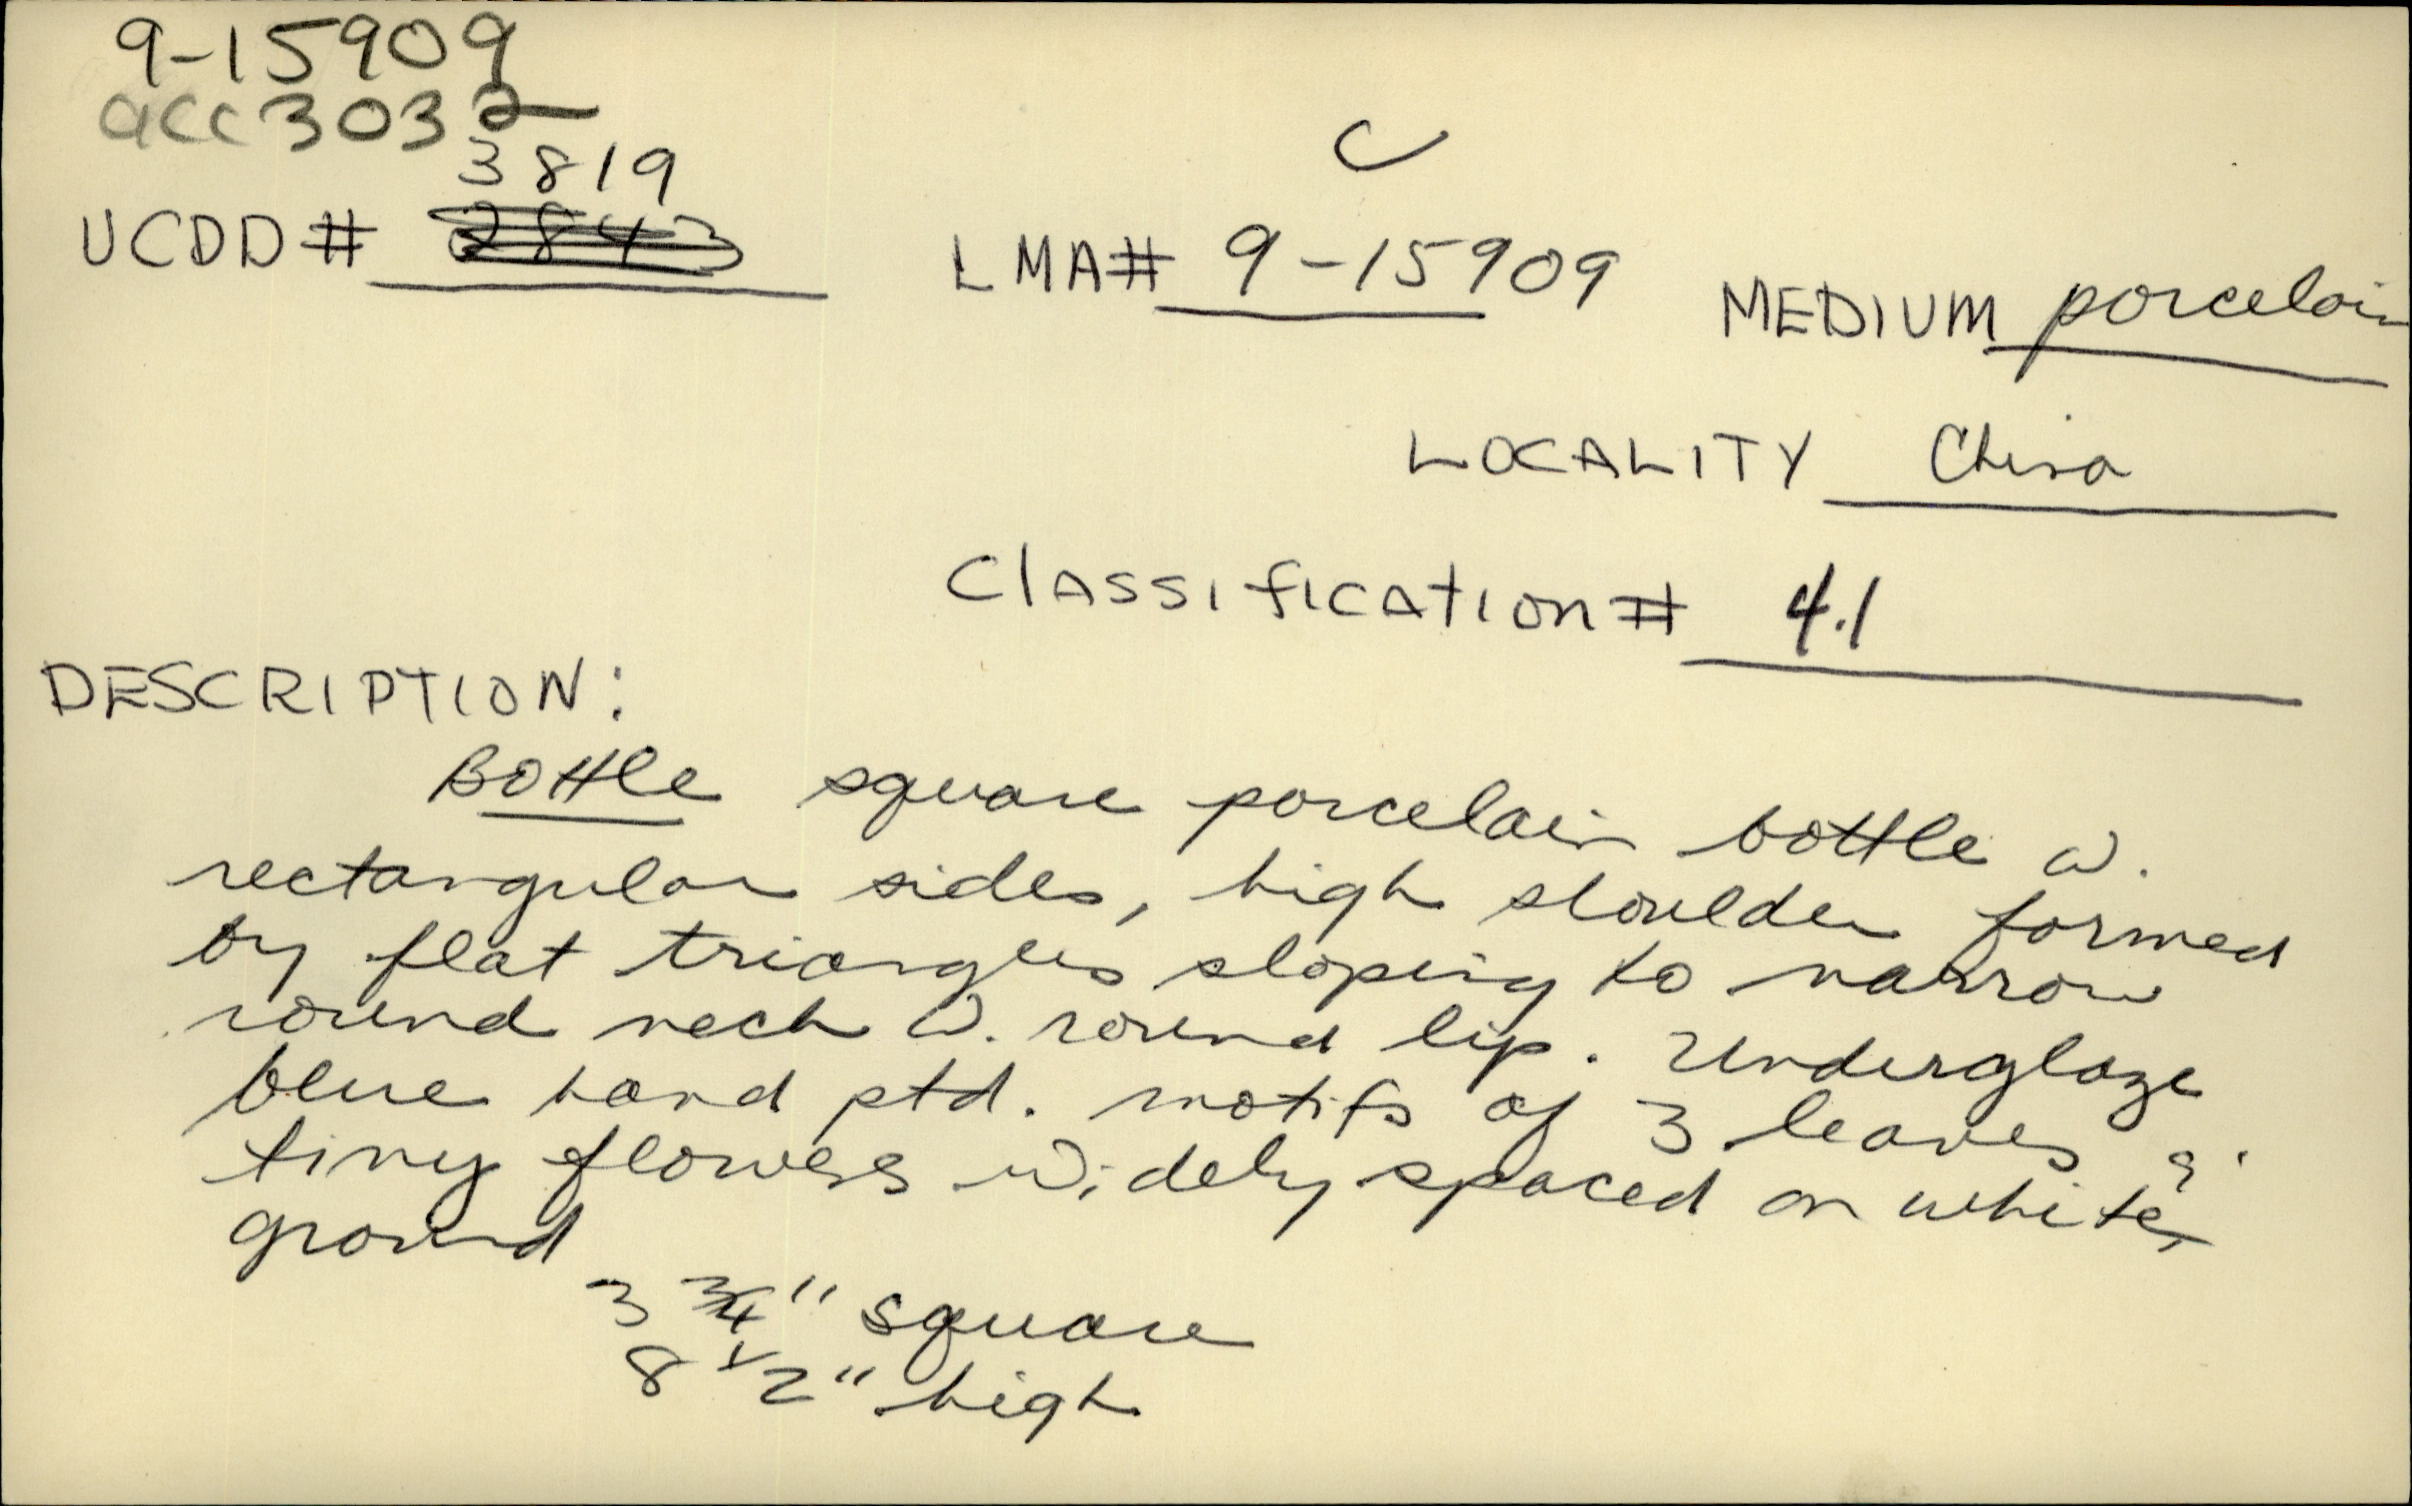 9-15909
acc 3032
3819
UCDD# 2843
C
LMA# 9-15909
MEDIUM porcelain
LOCALITY China
Classification# 4.1
DESCRIPTION:
Bottle square porcelain bottle w.
rectangular sides, high shoulder formed
by flat triangles sloping to narrow
round neck w. round lip. Underglaze
blue hand ptd. motifs of 3 leaves &
tiny flowers widely spaced on white
ground
3 3/4" square
8 1/2" high